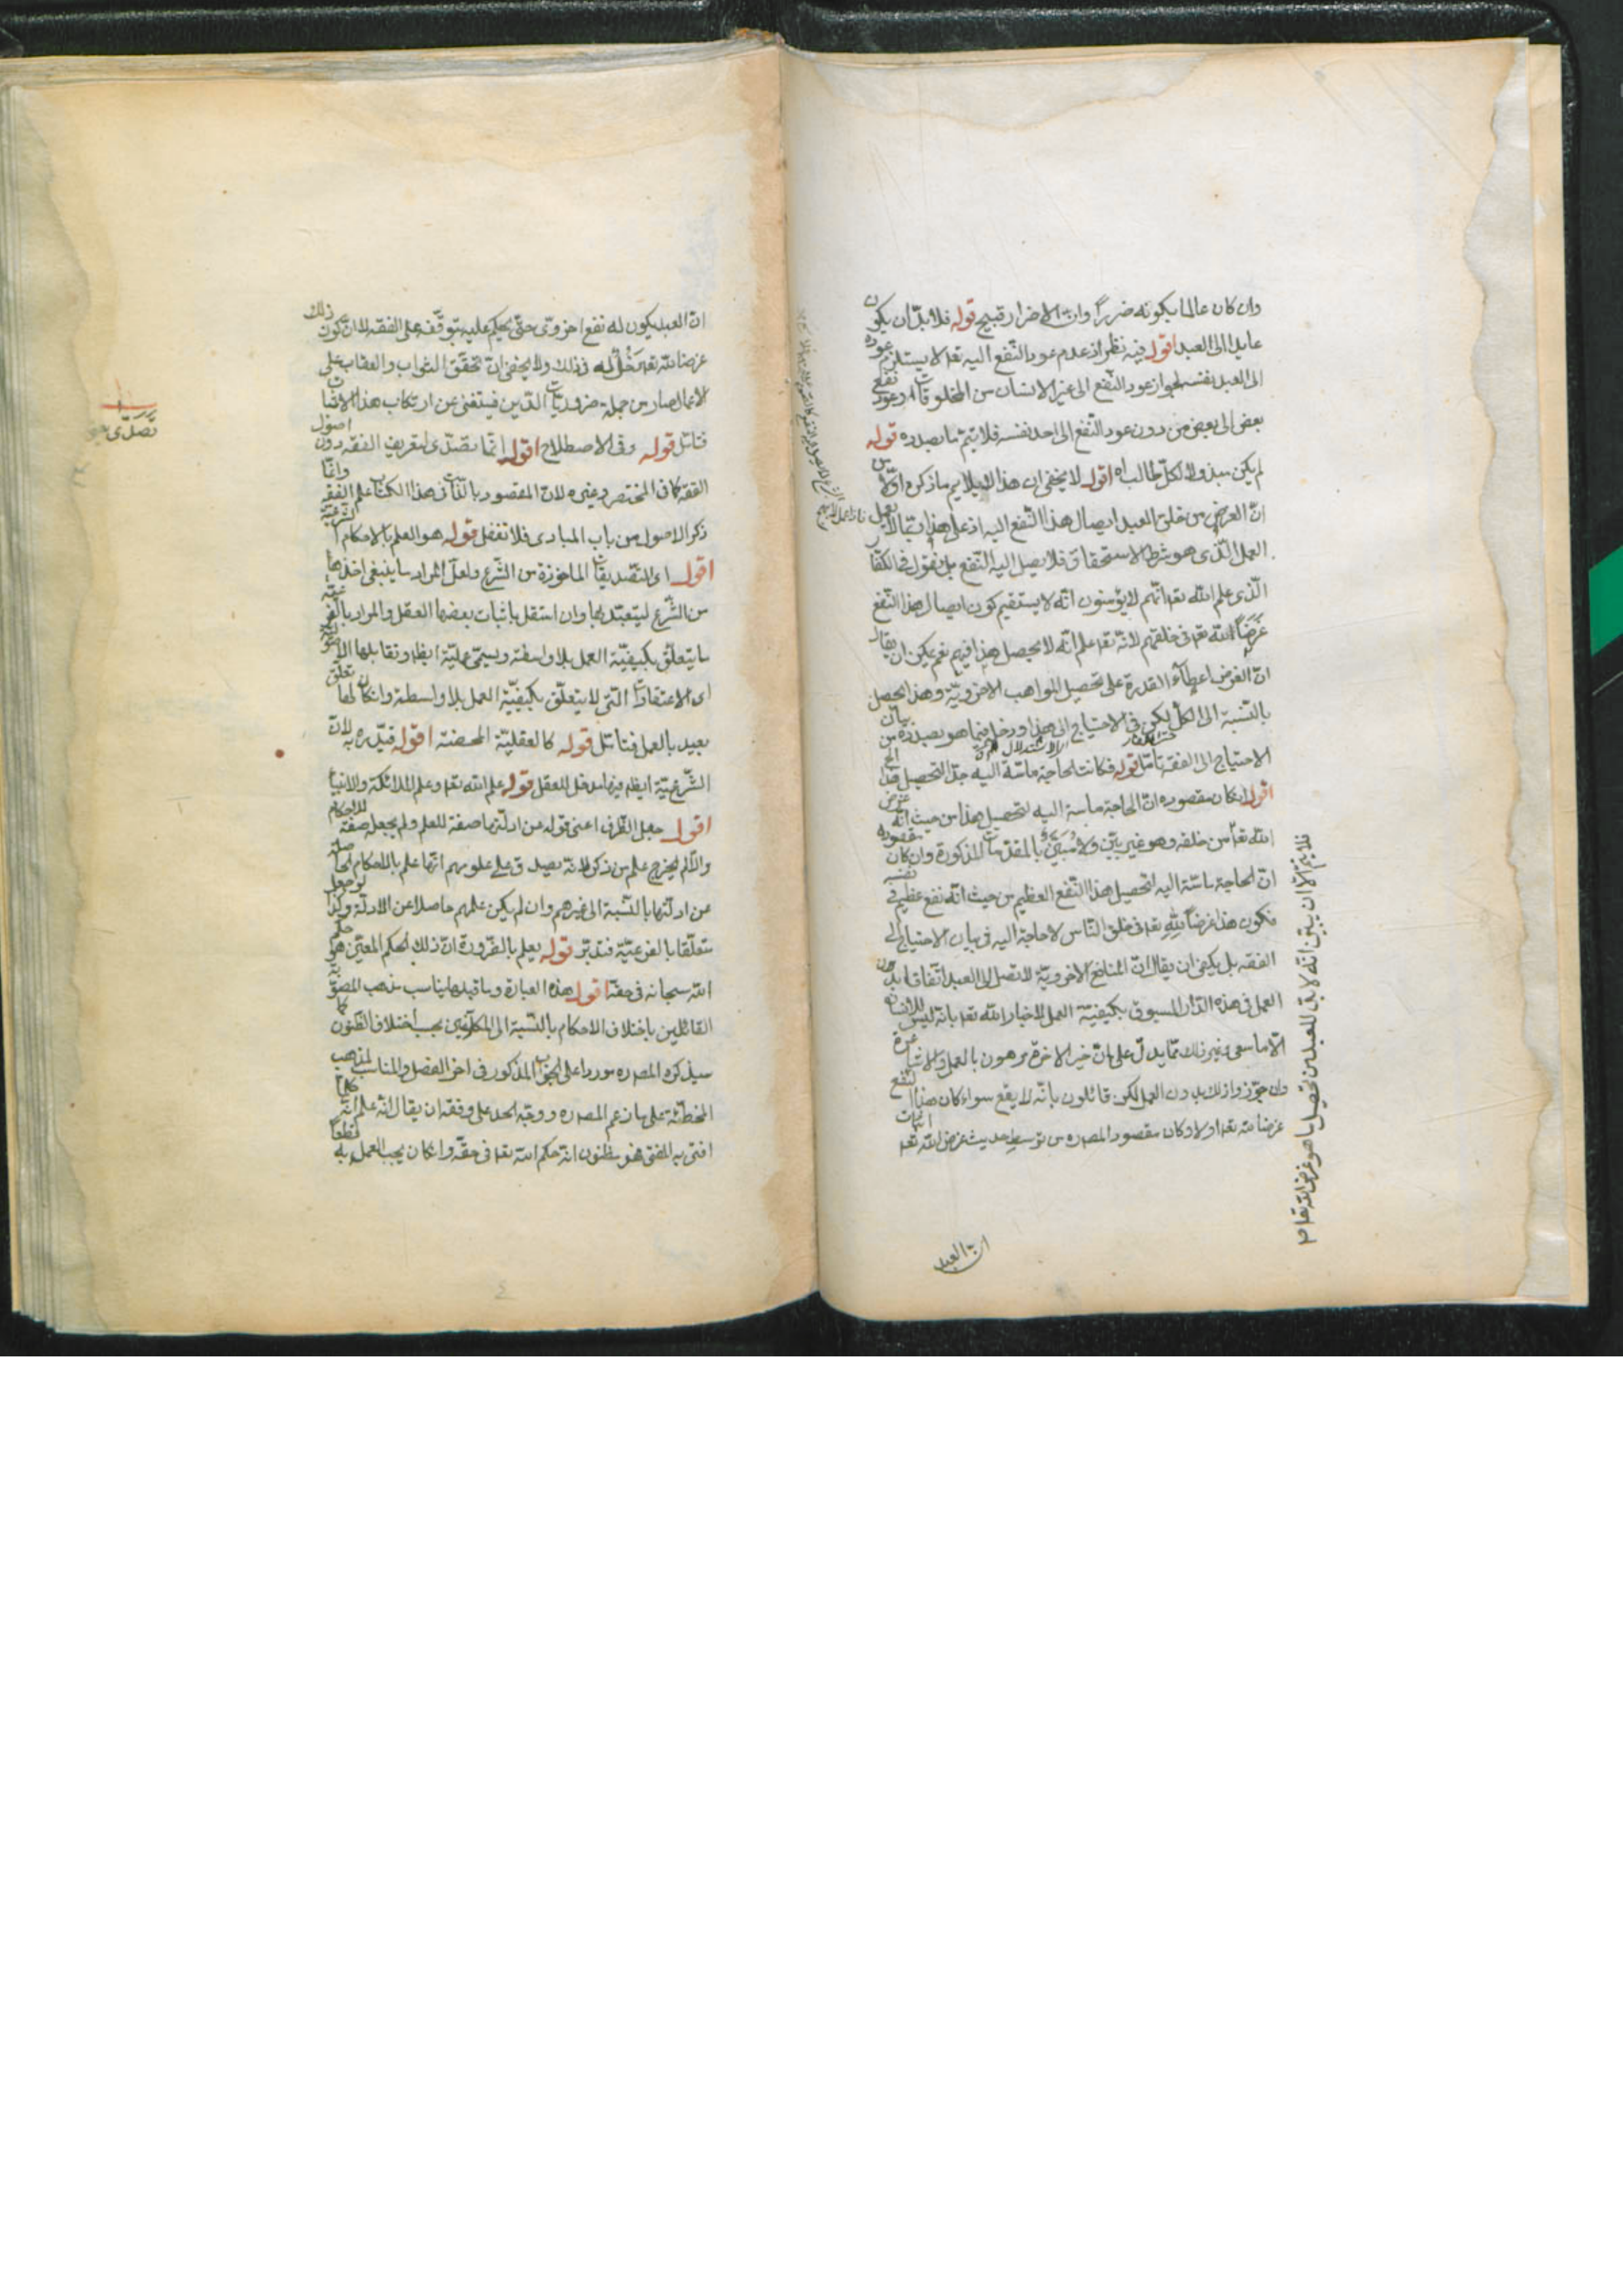 وان كان عالما بكونه ضررًا وان الاضرار قبيح قوله فلا بدّ ان يكون
عايدا الى العبد اقول فيه نظر اذ عدم عود النّفع اليه تعه لا يستلزم عوده
الى العبد نفسه لجواز عود النّفع الى غير الانسان من المخلوقات او عود نفع
بعض الى بعض من دون عود النّفع الى احد نفسه فلا يتمّ ما بصدده قوله
لم يكن مبذولا لكلّ طالب اه اقول لا يخفى ان هذا لا يلايم ما ذكره اوّلا من
انّ الغرض من خلق العبد ايصال هذا النّفع اليه اذ على هذا
العمل الّذى هو شرط الاستحقاق فلا يصل اليه النّفع بل نقول فى الكفّار
الّذى علم الله تعه انّهم لا يؤمنون انّه لا يستقيم كون ايصال هذا النّفع
غَرَضًا لله تعه فى خلقهم لانّه تعه علم انّه لا يحصل هذا فيهم نعم يمكن ان يقال
انّ الغرض اعطآء القدرة على تحصيل المواهب الاخرويّة وهذا يحصل
بالنّسبة الى الكلّ لكن فى الاحتياج الى هذا ودخله فيما هو بصدده من بيان
الاحتياج الى الفقه تامّل قوله فكانت الحاجة ماسّة اليه جدّا لتحصيل
اقول ان كان مقصوده انّ الحاجة ماسة اليه لتحصيل هذا من حيث انّه غرض
الله تعه من خلقه وهو غير بيّن ولا مُبَيَّن بالمقدّمات المذكورة وان كان مقصوده
انّ الحاجة ماسّة اليه لتحصيل هذا النّفع العظيم من حيث انّه نفع عظيم فى نفسه
فكون هذا غرضًا لِلّهِ تعه فى خلق النّاس لا حاجة اليه فى بيان الاحتياج الى
الفقه بل يكفى ان يقال انّ المنافع الاخرويّة لا تصل الى العبد اتّفاقا بدون
العمل فى هذه الدّار المسبوق بكيفيّة العمل لاخبار الله تعه بانّه ليس للانسان
الّا ما سعى وغير ذلك ممّا يدلّ على انّ خير الاخرة مرهون بالعمل والاشاعرة
وان جوّزوا ذلك بدون العمل لكن قائلون بانّه لا يقع سواء كان هذا النّفع
غرضا لله تعه اولا وكان مقصود المصره من توسيط حديث غرض الله تعه اثبات
فلا يتمّ الّا ان يبيّن انّه لا بدّ للعبد من تحصيل ما هو غرض الله تعه
انّ العبد
انّ العبد يكون له نفع اخروىّ حتّى يحكم عليه بتوقّفه على الفقه لا انّ كون ذلك
غرضا لله تعه مَدْخَلٌ له فى ذلك ولا يخفى انّ تحقّق الثواب والعقاب على
الاعمال صار من جملة ضروريّات الدّين فيستغنى عن ارتكاب هذا الاثبات
فتامّل قوله وفى الاصطلاح اقول انّما تصدّى لتعريف الفقه دون اصول
الفقه كما فى المختصر وغيره لانّ المقصود بالذّات فى هذا الكتاب علم الفقه وانّما
ذكر الاصول من باب المبادى فلا تغفل قوله هو العلم بالاحكام الشّرعيّة
اقول اى التّصديقات الماخوذة من الشّرع ولعلّ المراد ما ينبغى اخذها
من الشّرع ليتعبّد بها وان استقلّ باثبات بعضها العقل والمراد بالفرعيّة
ما يتعلّق بكيفيّة العمل بلا واسطة ويسمّى عمليّة ايظه وتقابلها الاصول
اى الاعتقادات التّى لا يتعلّق بكيفيّة العمل بلا واسطة وان كان لها تعلّق
بعيد بالعمل فتامّل قوله كالعقليّة المحضة اقول قيّد ره به لانّ
الشّرعيّة ايظه فيها مدخل للعقل قوله علم الله تعه وعلم الملائكة والانبيآ
اقول جعل الظّرف اعنى قوله عن ادلّتها صفة للعلم ولم يجعل صفة للاحكام
والّا لم يخرج علم من ذكر لانّه يصدق على علومهم انّها علم بالاحكام الحاصلة
عن ادلّتها بالنّسبة الى غيرهم وان لم يكن علمهم حاصلا عن الادلّة وكذا لو جعل
متعلّقا بالفرعيّة فتدبّر قوله يعلم بالضّرورة انّ ذلك الحكم المعيّن هو حكم
الله سبحانه فى حقّه اقول هذه العبارة وما قبلها يناسب مذهب المصوّبة
القائلين باختلاف الاحكام بالنّسبة الى المكلّفين بحسب اختلاف الظّنون كما
سيذكره المصره موردا على الجواب المذكور فى اخر الفصل والمناسب لمذهب
المخطّئة على ما زعم المصره ووجّه الحدّ على وفقه ان يقال انّه علم انّه كلّما
افتى به المفتى فهو مظنون انّه حكم الله تعه فى حقّه وان كان يجب العمل به قطعًا
تَصَدّى